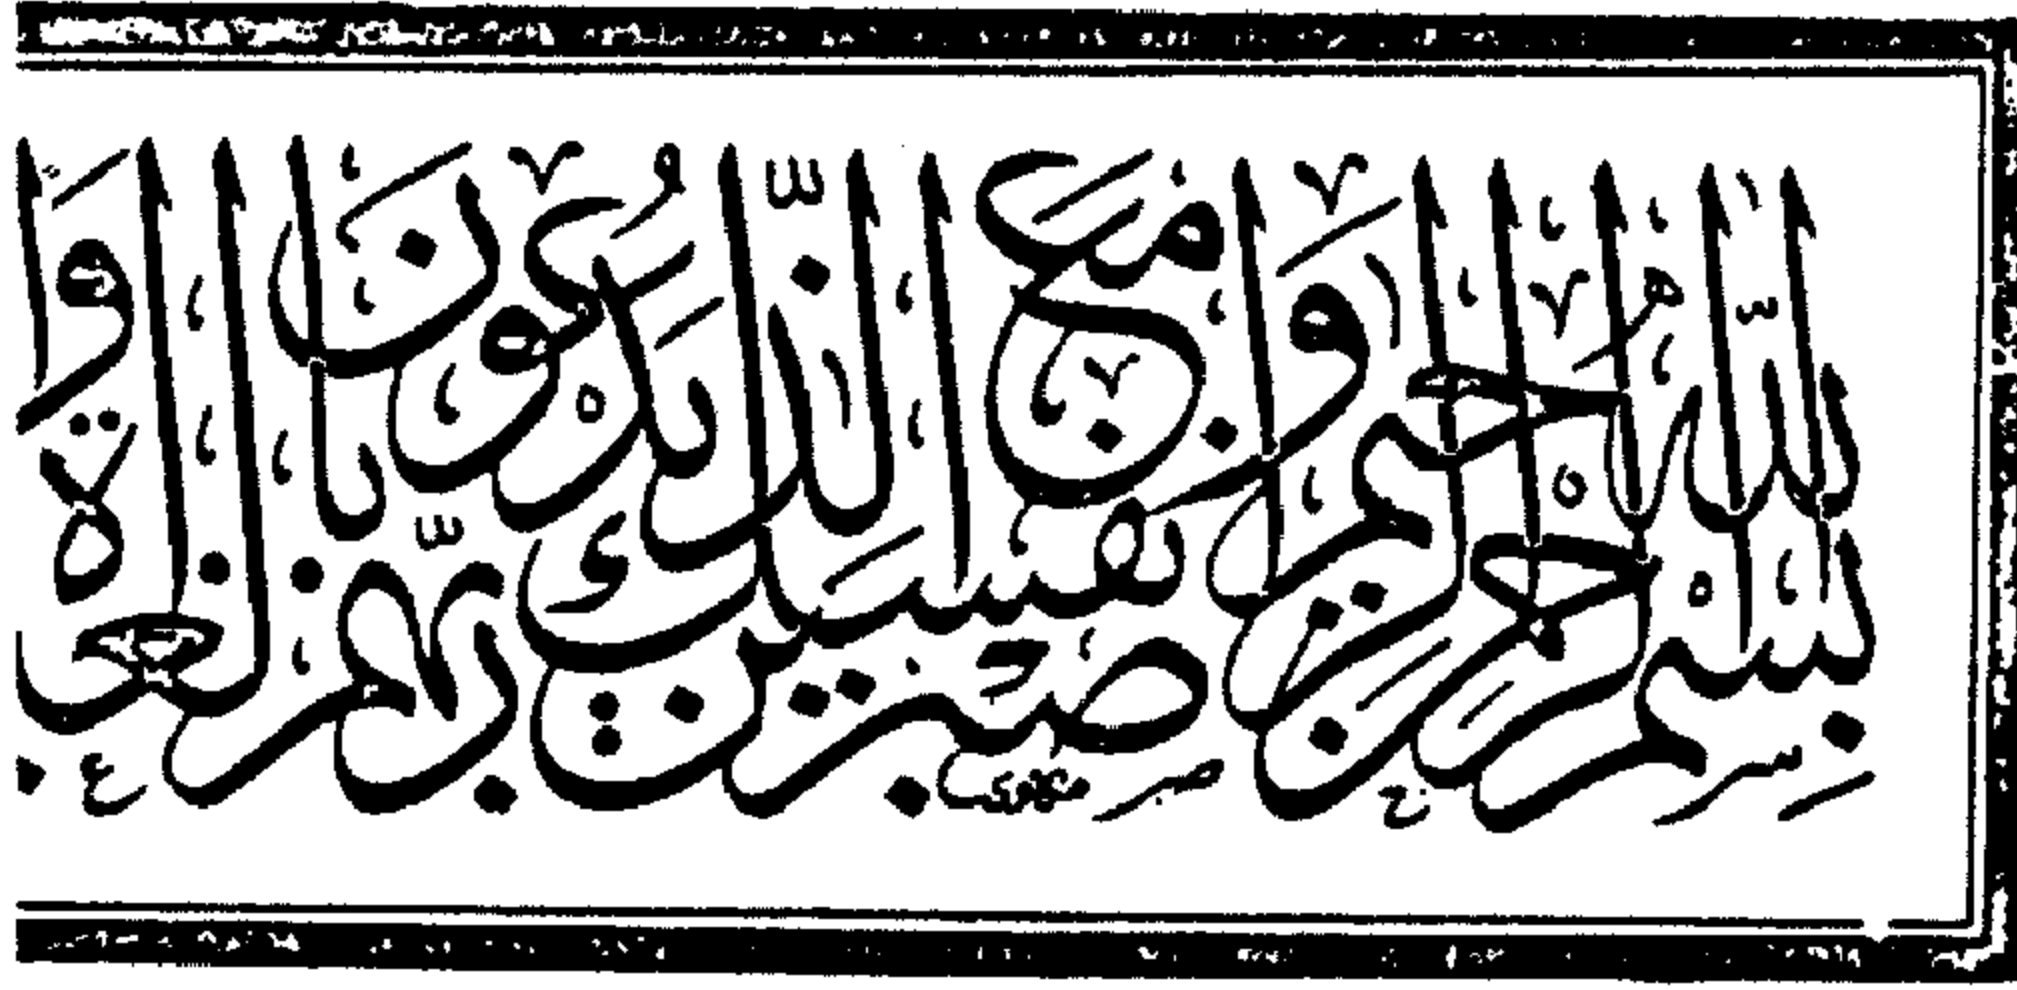 بسم الله الرحمن الرحيم واصبر نفسك مع الذين يدعون ربهم بالغداة وا